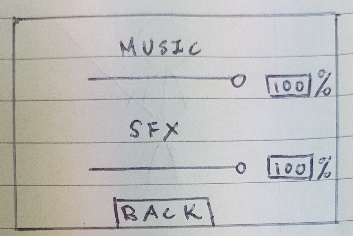 MUSIC
100%
SFX
100%
BACK